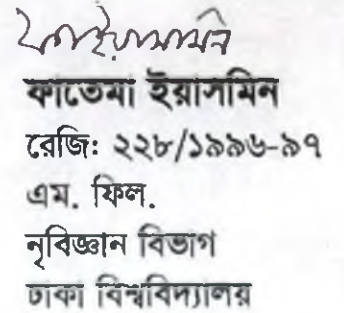 ফাইয়াসমিন
ফাতেমা ইয়াসমিন
রেজি: ২২৮/১৯৯৬-৯৭
এম. ফিল.
নৃবিজ্ঞান বিভাগ
ঢাকা বিশ্ববিদ্যালয়